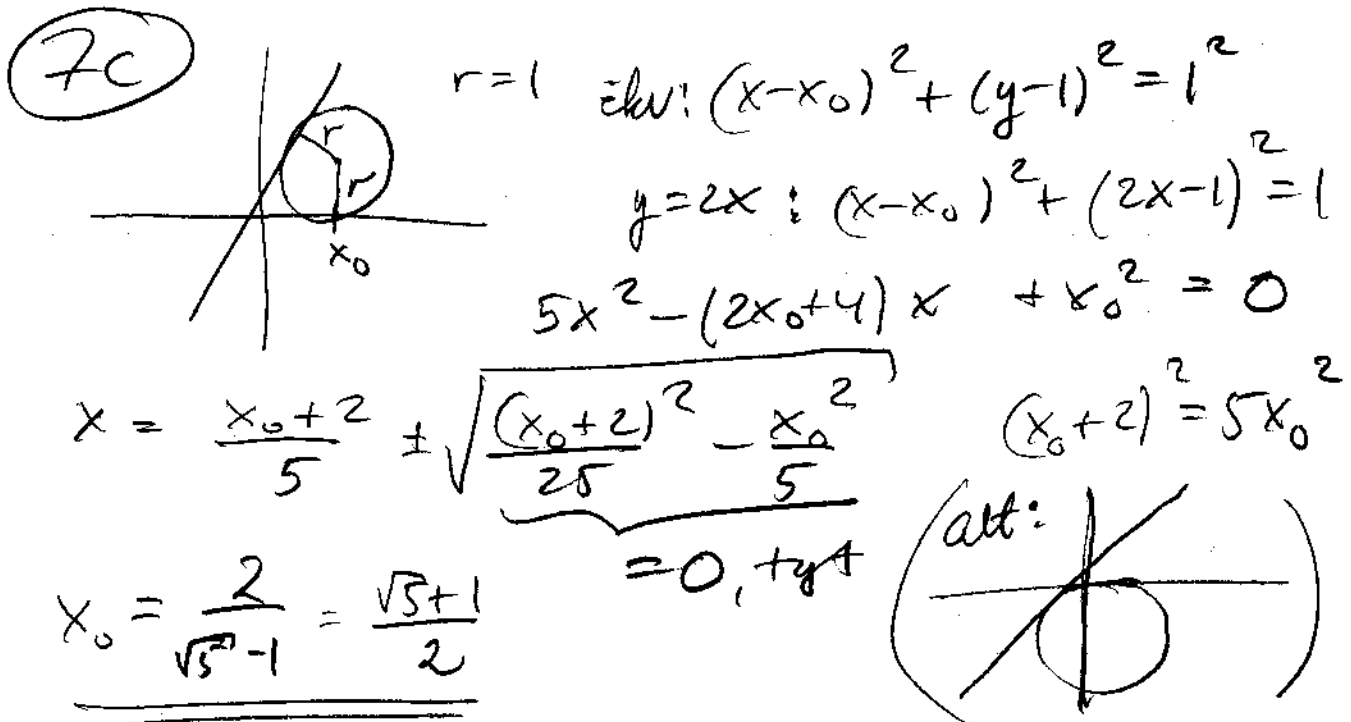 7c
r=1 ekv: (x-x₀)² + (y-1)² = 1²
r
r
x₀
y=2x : (x-x₀)² + (2x-1)² = 1
5x² - (2x₀+4)x + x₀² = 0
x = (x₀+2)/5 ± √((x₀+2)²/25 - x₀²/5) (x₀+2)² = 5x₀²
= 0, ty
(alt: )
x₀ = 2/(√5-1) = (√5+1)/2